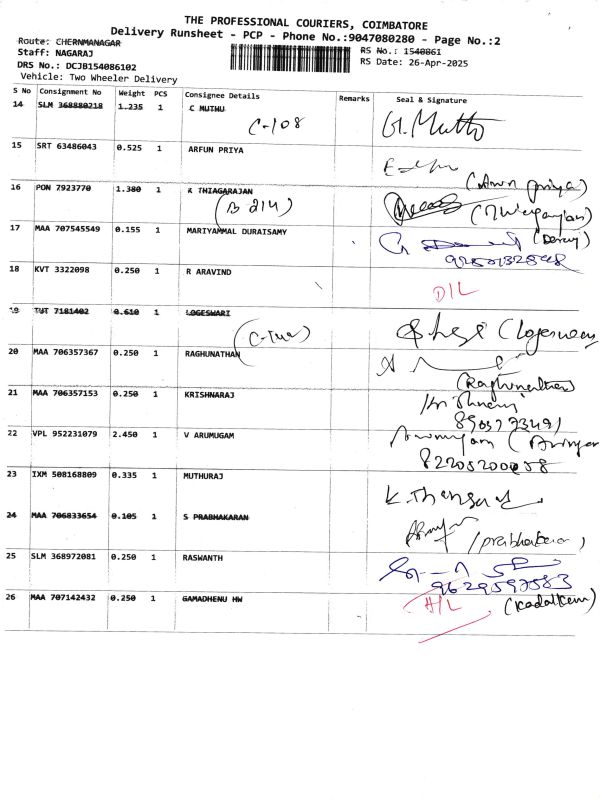 THE PROFESSIONAL COURIERS, COIMBATORE
Delivery Runsheet - PCP - Phone No.:9047080280 - Page No.:2
Route: CHERNMANAGAR
Staff: NAGARAJ
RS No.: 1540861
DRS No.: DCJB154086102
RS Date: 26-Apr-2025
Vehicle: Two Wheeler Delivery
S No Consignment No Weight PCS Consignee Details Remarks Seal & Signature
14 SLM 368880218 1.235 1 C MUTHU
C-108
15 SRT 63486043 0.525 1 ARFUN PRIYA
16 PON 7923770 1.380 1 K THIAGARAJAN
(B 214)
17 MAA 707545549 0.155 1 MARIYAMMAL DURAISAMY
18 KVT 3322098 0.250 1 R ARAVIND
D/L
19 TUT 7181402 0.610 1 LOGESWARI
20 MAA 706357367 0.250 1 RAGHUNATHAN
(Raghunathan)
21 MAA 706357153 0.250 1 KRISHNARAJ
22 VPL 952231079 2.450 1 V ARUMUGAM
23 IXM 508168809 0.335 1 MUTHURAJ
24 MAA 706833654 0.105 1 S PRABHAKARAN
25 SLM 368972081 0.250 1 RASWANTH
9629597583
26 MAA 707142432 0.250 1 GAMADHENU HW